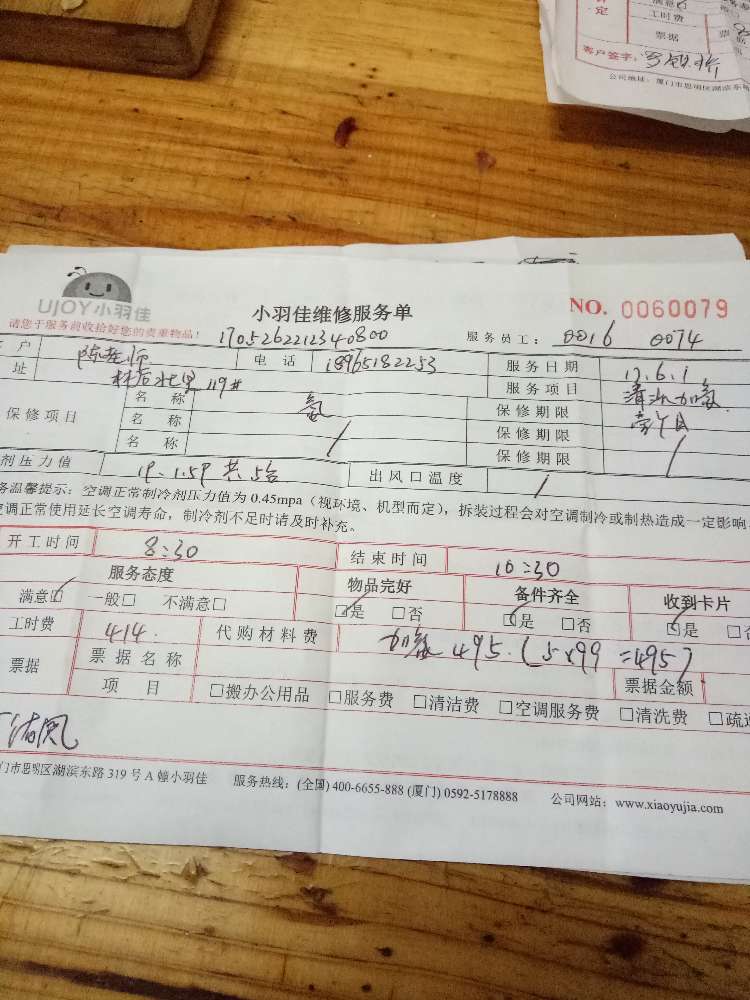 定
满意
工时费
票据
客户签字:
公司地址: 厦门市思明区湖滨东
UJOY小羽佳
小羽佳维修服务单
NO. 0060079
请您于服务前收拾好您的贵重物品!
1705262212340800
服务员工: 0016 0074
户
陈老师
电 话
18965182253
服务日期
17.6.1
址
林后北里 119#
服务项目
清洗加氨
保修项目
名 称
氨
保修期限
名 称
保修期限
名 称
保修期限
剂压力值
1P. 1.5P 共5台
出风口温度
务温馨提示: 空调正常制冷剂压力值为 0.45mpa (视环境、机型而定), 拆装过程会对空调制冷或制热造成一定影响
调正常使用延长空调寿命, 制冷剂不足时请及时补充。
开工时间
8:30
结束时间
10:30
服务态度
物品完好
备件齐全
收到卡片
满意☑ 一般□ 不满意□
☑是 □否
☑是 □否
☑是 □否
工时费
414.
代购材料费
加氨 495. (5×99=495)
票据
票据名称
票据金额
项 目
□搬办公用品 □服务费 □清洁费 □空调服务费 □清洗费 □疏通
门市思明区湖滨东路 319 号 A 幢小羽佳
服务热线: (全国) 400-6655-888 (厦门) 0592-5178888
公司网站: www.xiaoyujia.com